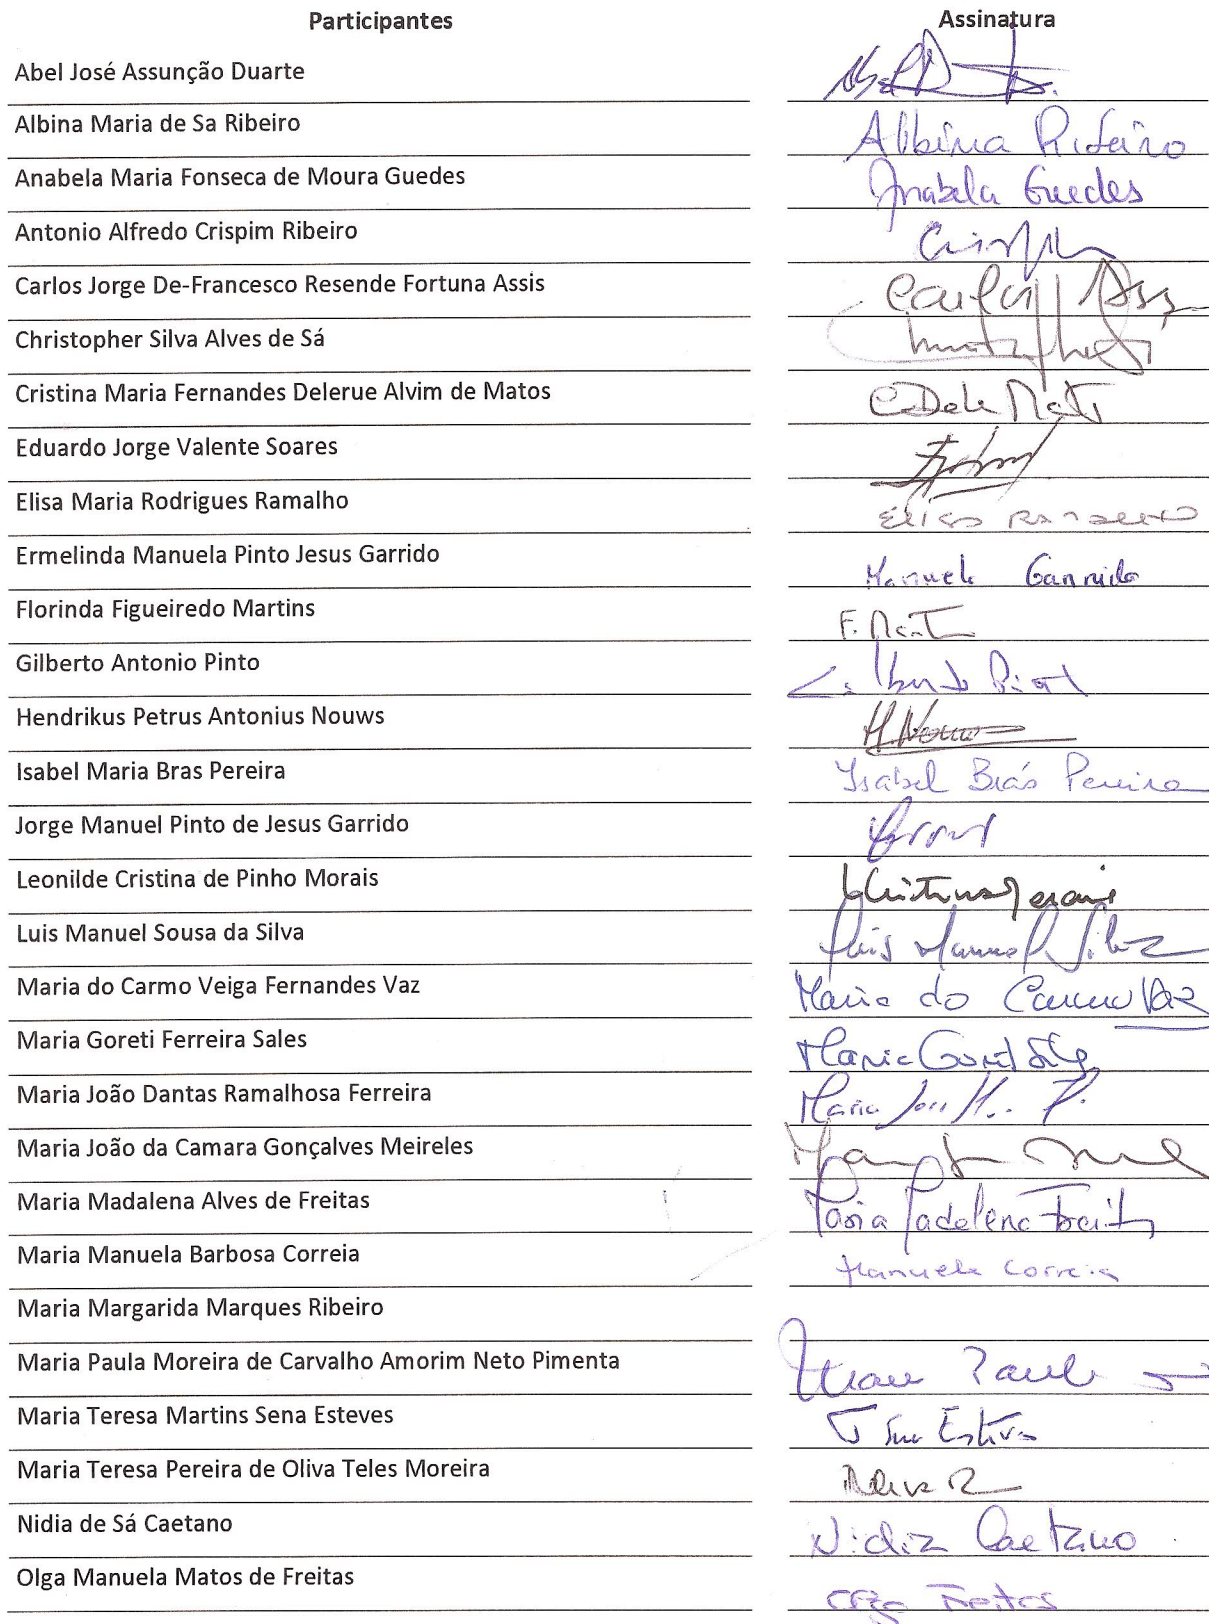 Participantes Assinatura
Abel José Assunção Duarte
Albina Maria de Sa Ribeiro Albina Ribeiro
Anabela Maria Fonseca de Moura Guedes Anabela Guedes
Antonio Alfredo Crispim Ribeiro
Carlos Jorge De-Francesco Resende Fortuna Assis Carlos Assis
Christopher Silva Alves de Sá
Cristina Maria Fernandes Delerue Alvim de Matos
Eduardo Jorge Valente Soares
Elisa Maria Rodrigues Ramalho Elisa Ramalho
Ermelinda Manuela Pinto Jesus Garrido Manuela Garrido
Florinda Figueiredo Martins
Gilberto Antonio Pinto Gilberto Pinto
Hendrikus Petrus Antonius Nouws H. Nouws
Isabel Maria Bras Pereira Isabel Brás Pereira
Jorge Manuel Pinto de Jesus Garrido
Leonilde Cristina de Pinho Morais
Luis Manuel Sousa da Silva Luís Manuel Silva
Maria do Carmo Veiga Fernandes Vaz Maria do Carmo Vaz
Maria Goreti Ferreira Sales Maria Goreti Sales
Maria João Dantas Ramalhosa Ferreira Maria
Maria João da Camara Gonçalves Meireles
Maria Madalena Alves de Freitas Maria Madalena Freitas
Maria Manuela Barbosa Correia Manuela Correia
Maria Margarida Marques Ribeiro
Maria Paula Moreira de Carvalho Amorim Neto Pimenta Maria Paula
Maria Teresa Martins Sena Esteves
Maria Teresa Pereira de Oliva Teles Moreira
Nidia de Sá Caetano Nídia Caetano
Olga Manuela Matos de Freitas Olga Freitas